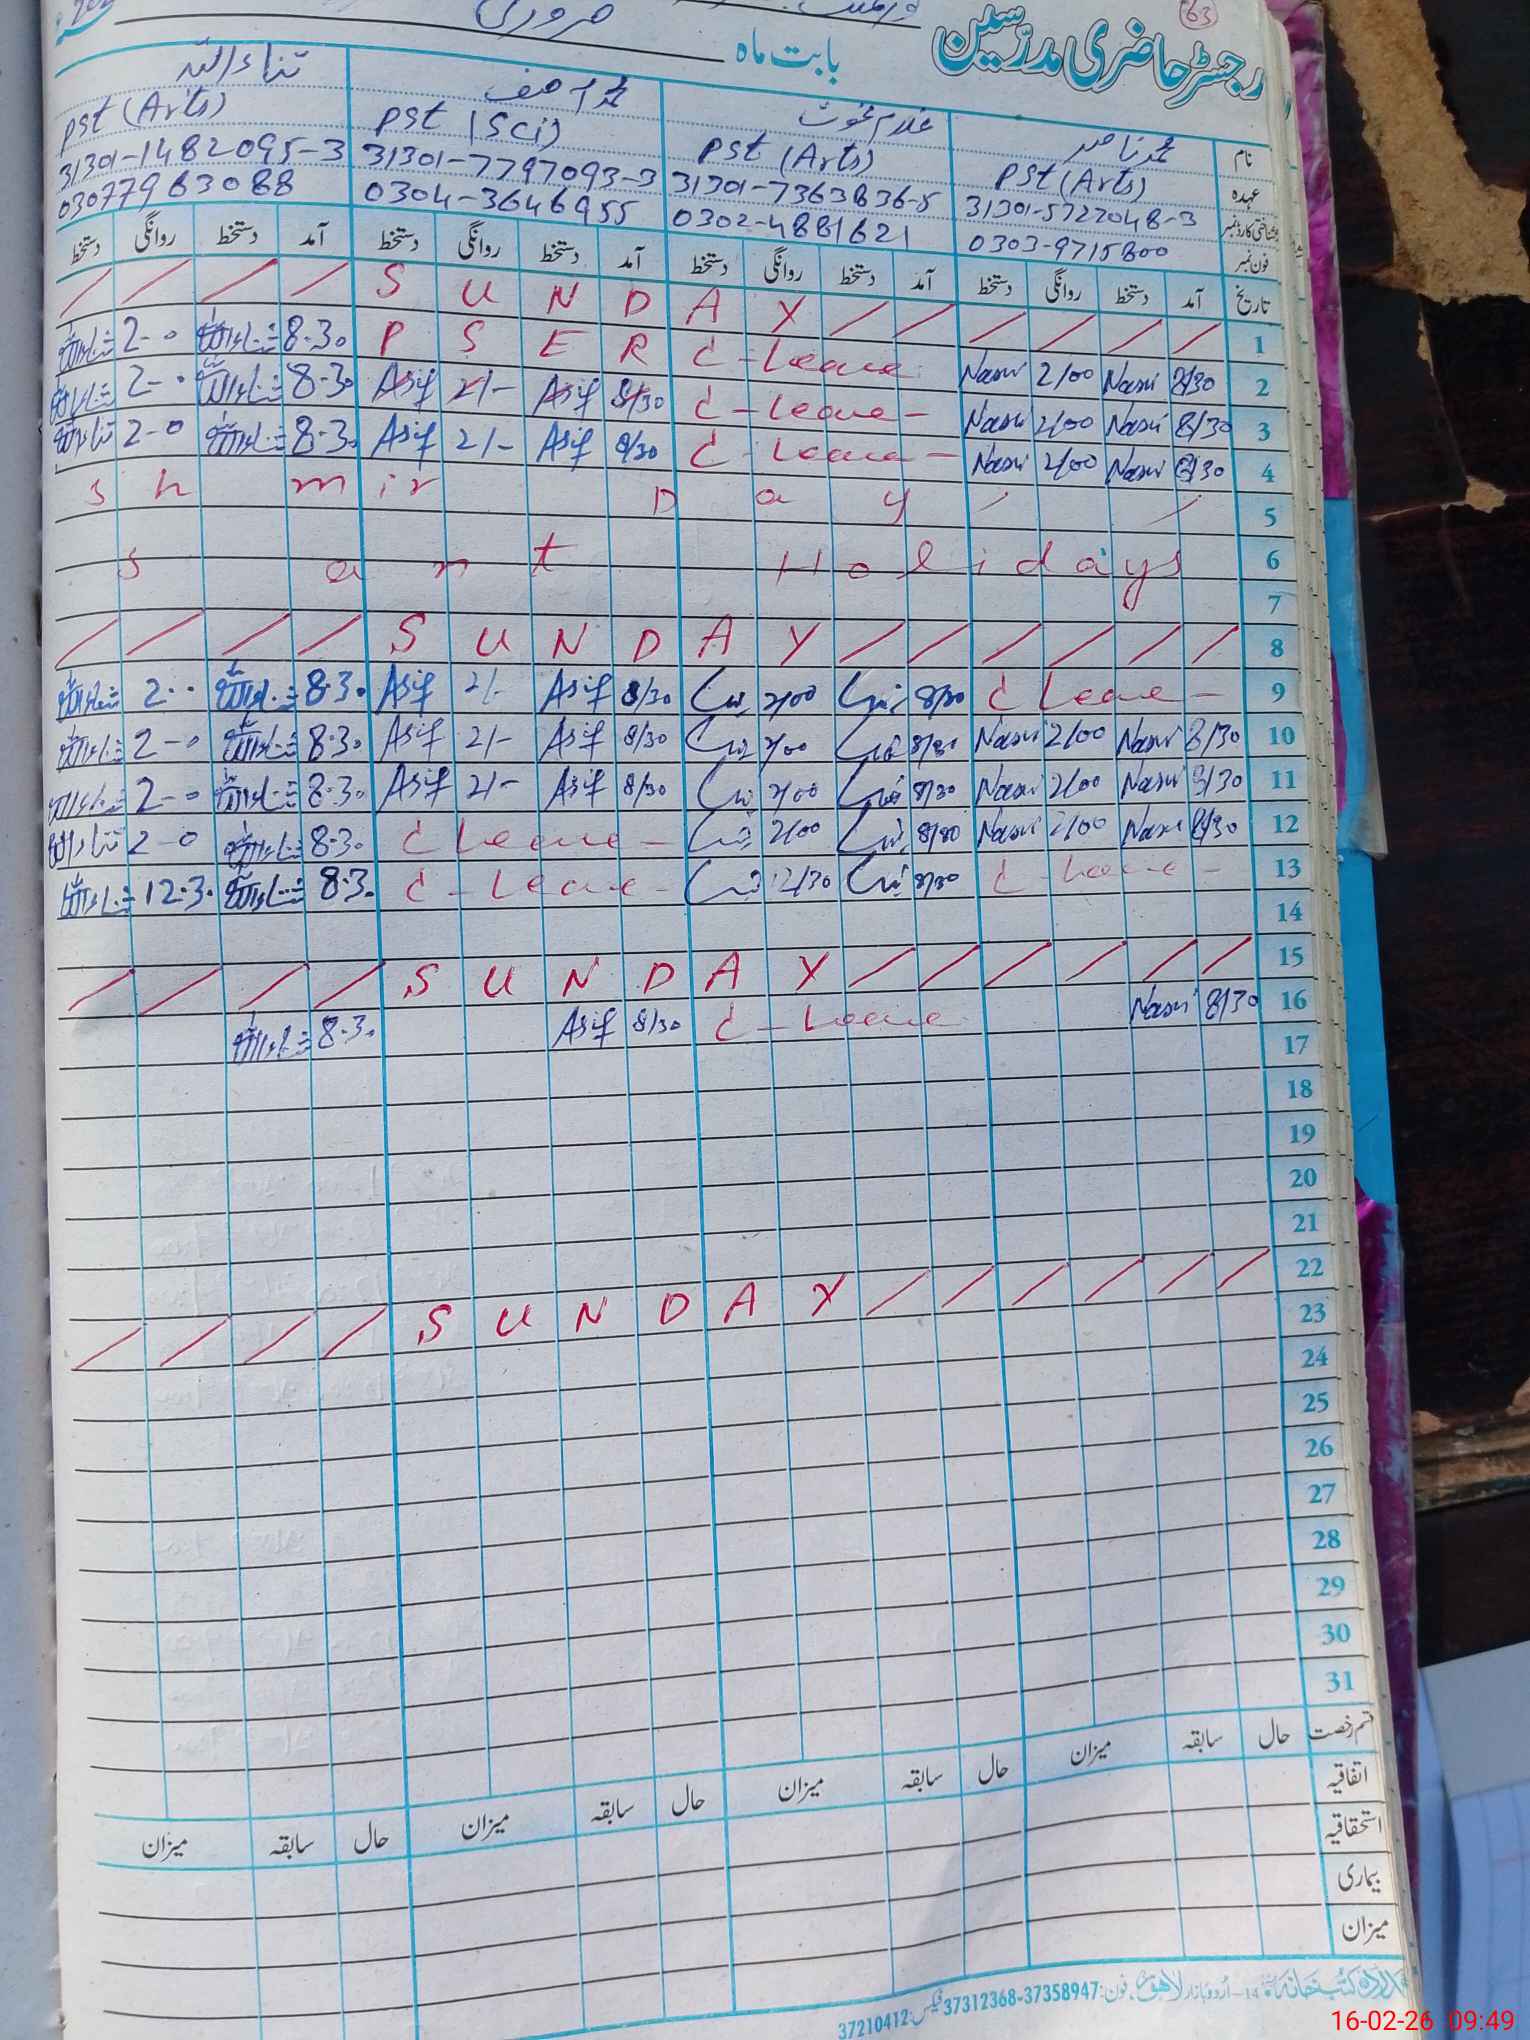 63
رجسٹر حاضری مدرسین
بابت ماہ فروری
نام محمد ناصر غلام غوث محمد آصف ثناء اللہ
عہدہ Pst (Arts) Pst (Arts) Pst (Sci) Pst (Arts)
شناختی کارڈ نمبر 31301-5727048-3 31301-7363836-5 31301-7797093-3 31301-1482095-3
فون نمبر 0303-9715800 0302-4881621 0304-3646955 03077963088
تاریخ آمد دستخط روانگی دستخط آمد دستخط روانگی دستخط آمد دستخط روانگی دستخط آمد دستخط روانگی دستخط
1 / / / / / / S U N D A Y / / / /
2 8/30 Nasir 2/00 Nasir C - Leave P S E R 8.30 ثناء اللہ 2-0 ثناء اللہ
3 8/30 Nasir 2/00 Nasir C - Leave - 8/30 Asif 2/- Asif 8.30 ثناء اللہ 2-0 ثناء اللہ
4 8/30 Nasir 2/00 Nasir C - Leave - 8/30 Asif 2/- Asif 8.30 ثناء اللہ 2-0 ثناء اللہ
5 s h m i r D a y / /
6 s a n t Holidays
7
8 / / / / S U N D A Y / / / / / /
9 C Leave - 8/30 2/00 8/30 Asif 2/- Asif 8.30 ثناء اللہ 2-0 ثناء اللہ
10 8/30 Nasir 2/00 Nasir 8/30 2/00 8/30 Asif 2/- Asif 8.30 ثناء اللہ 2-0 ثناء اللہ
11 8/30 Nasir 2/00 Nasir 8/30 2/00 8/30 Asif 2/- Asif 8.30 ثناء اللہ 2-0 ثناء اللہ
12 8/30 Nasir 2/00 Nasir 8/30 2/00 C Leave - 8.30 ثناء اللہ 2-0 ثناء اللہ
13 C - Leave - 8/30 12/30 C - Leave - 8.30 ثناء اللہ 12.30 ثناء اللہ
14
15 / / / / S U N D A Y / / / / / /
16 8/30 Nasir C - Leave 8/30 Asif 8.30 ثناء اللہ
17
18
19
20
21
22 / / / / S U N D A Y / / / / / /
23
24
25
26
27
28
29
30
31
قسم رخصت حال سابقہ میزان حال سابقہ میزان حال سابقہ میزان حال سابقہ میزان
اتفاقیہ
استحقاقیہ
بیماری
میزان
کتب خانہ 14-اردو بازار لاہور، فون: 37312368-37358947 فیکس: 37210412
16-02-26 09:49